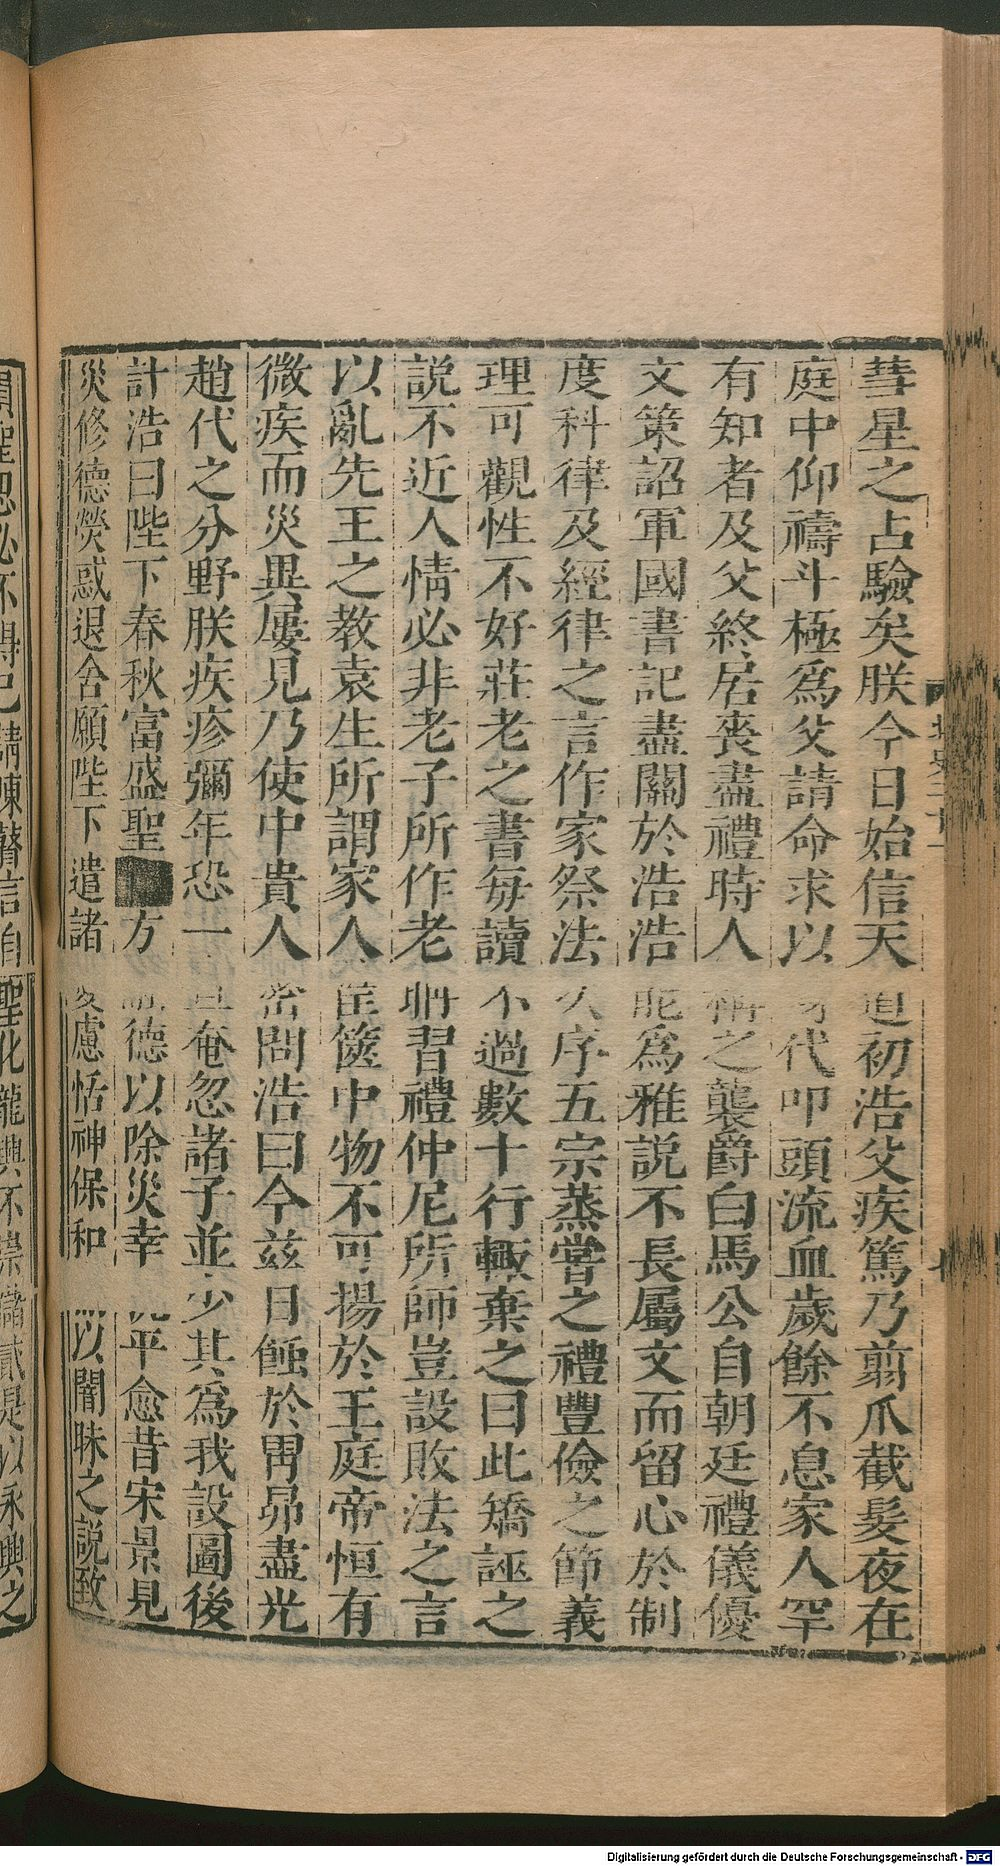 彗星之占驗矣朕今日始信天道初浩父疾篤乃剪爪截髮夜在
庭中仰禱斗極爲父請命求以代叩頭流血歲餘不息家人罕
有知者及父終居喪盡禮時人稱之襲爵白馬公自朝廷禮儀優
文策詔軍國書記盡關於浩浩能爲雅說不長屬文而留心於制
度科律及經律之言作家祭法次序五宗蒸嘗之禮豐儉之節義
理可觀性不好莊老之書每讀不過數十行輙棄之曰此矯誣之
說不近人情必非老子所作老聃習禮仲尼所師豈設敗法之言
以亂先王之教袁生所謂家人筐篋中物不可揚於王庭帝恒有
微疾而災異屢見乃使中貴人密問浩曰今茲日蝕於胃昴盡光
趙代之分野朕疾疹彌年恐一旦奄忽諸子並少其爲我設圖後
計浩曰陛下春秋富盛聖方德以除災幸平愈昔宋景見
災修德熒惑退舍願陛下遣諸憂慮恬神保和以闇昧之說致
聖化龍興不崇儲貳是以永興之
Digitalisierung gefördert durch die Deutsche Forschungsgemeinschaft - DFG